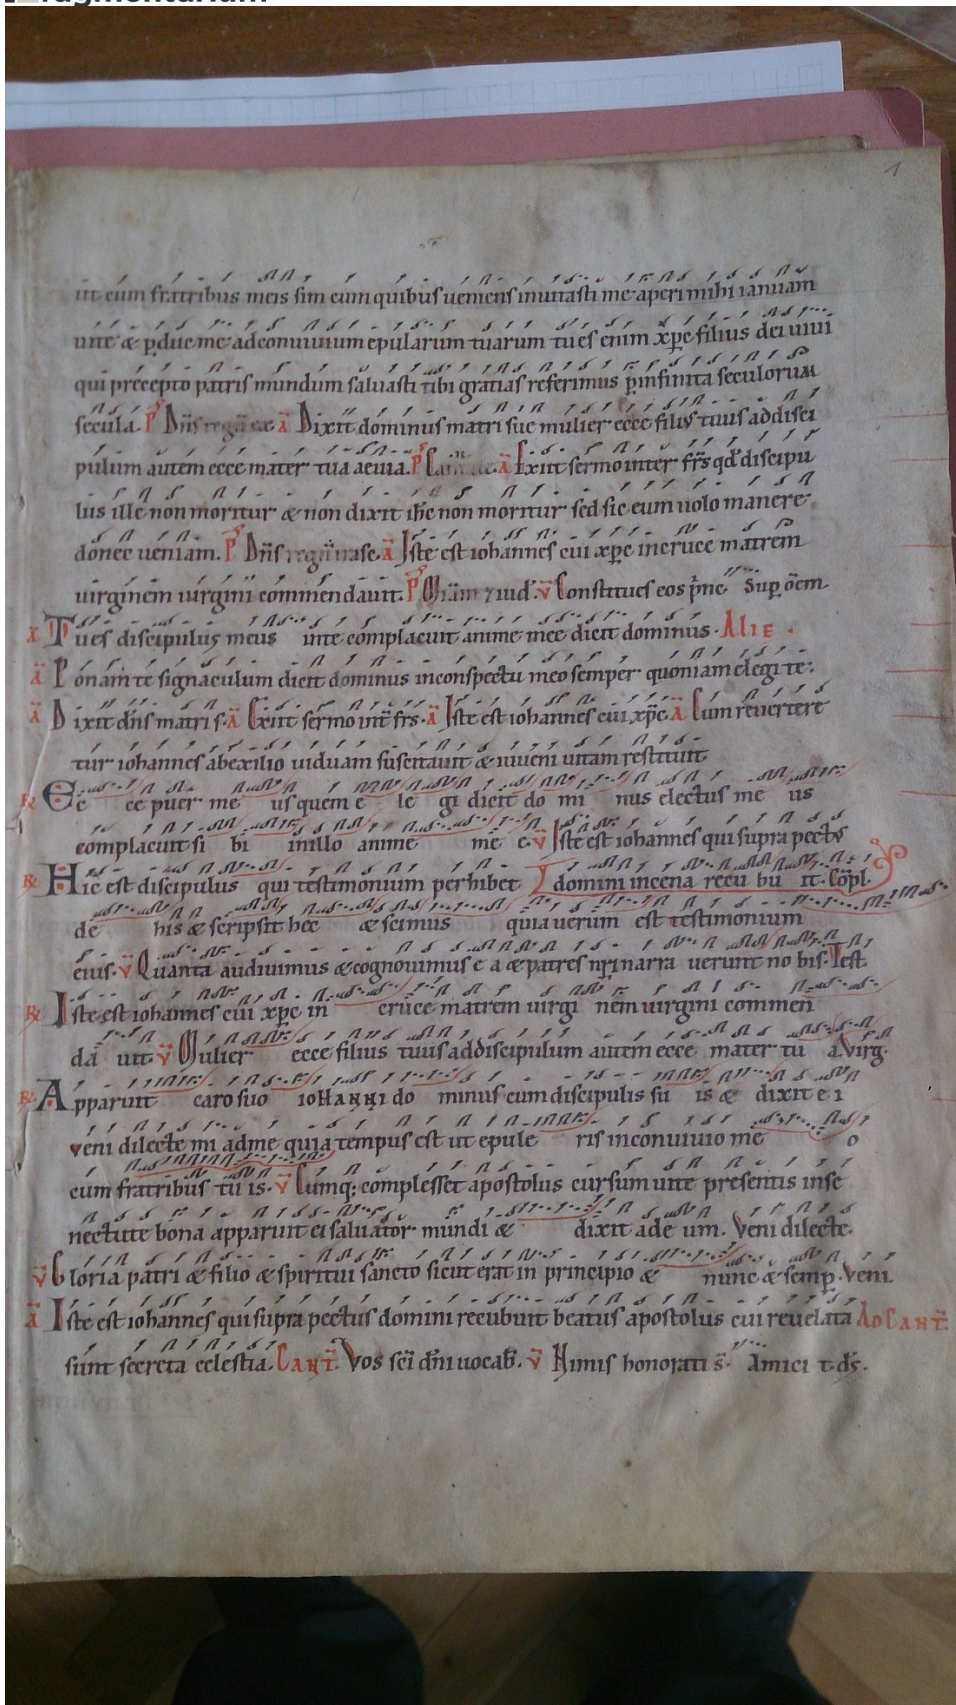 fragmentarium
1
ut cum fratribus meis sim cum quibus ueniens inuitasti me aperi mihi ianuam
uite & ꝑduc me ad conuiuium epularum tuarum tu es enim xp̄c filius dei uiui
qui precepto patris mundum saluasti tibi gratias referimus ꝑ infinita seculorum
secula. P̄ Dn̄s regn̄ ex ā Dixit dominus matri sue mulier ecce filiꝰ tuus ad disci
pulum autem ecce mater tua aeuia. P̄ ā Exiit sermo inter fr̄s qd̄ discipu
lus ille non moritur & non dixit ih̄c non moritur sed sic eum uolo manere
donec ueniam. P̄ Dn̄s ā Iste est iohannes cui xp̄c in cruce matrem
uirginem uirgini commendauit. P̄ v̄ Constitues eos p̄ne. Suꝑ ōem
ā Tu es discipulus meus in te complacuit anime mee dicit dominus. Alie.
ā Ponam te signaculum dicit dominus in conspectu meo semper quoniam elegi te.
ā Dixit dn̄s matri s. ā Exiit sermo int̄ frs. ā Iste est iohannes cui xp̄c ā Cum reuertere
tur iohannes ab exilio uiduam suscitauit & iuueni uitam restituit
℞ Ec ce puer me us quem e le gi dicit do mi nus electus me us
complacuit si bi in illo anime me e. v̄ Iste est iohannes qui supra pectꝰ
℞ Hic est discipulus qui testimonium perhibet domini in cena recu bu it. Cōpl.
de his & scripsit hec & scimus quia uerum est testimonium
eius. v̄ Quanta audiuimus & cognouimus e a & patres nr̄i narra uerunt no bis. Test.
℞ Iste est iohannes cui xp̄c in cruce matrem uirgi nem uirgini commen
da uit v̄ Mulier ecce filius tuus ad discipulum autem ecce mater tu a. Virg.
℞ Apparuit caro suo iohanni do minus cum discipulis su is & dixit e i
veni dilecte mi ad me quia tempus est ut epule ris in conuiuio me o
cum fratribus tu is. v̄ Cumq; complesset apostolus cursum uite presentis in se
nectute bona apparuit ei saluator mundi & dixit ad e um. Veni dilecte.
v̄ Gloria patri & filio & spiritui sancto sicut erat in principio & nunc & semꝑ. Veni
ā Iste est iohannes qui supra pectus domini recubuit beatus apostolus cui reuelata Ad Cant̄.
sunt secreta celestia. Cant̄. Vos sc̄i dn̄i uocab. v̄ Nimis honorati s̄. Amici t. ds̄.